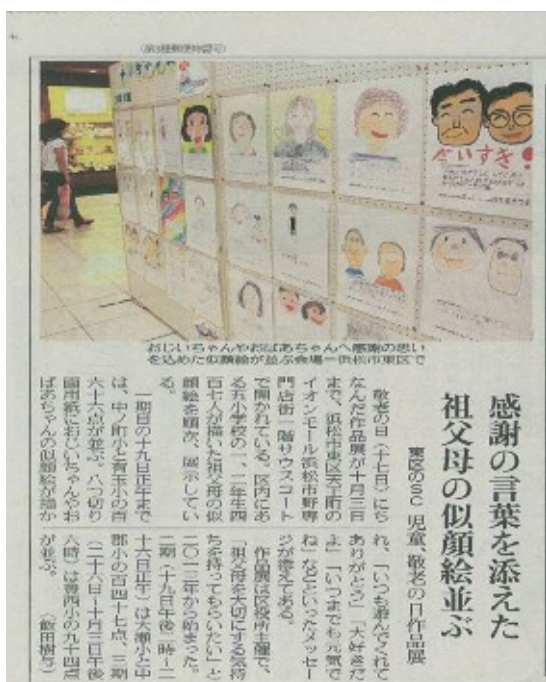 （第3種郵便物認可）
だいすき！
おじいちゃんやおばあちゃんへ感謝の思い
を込めた似顔絵が並ぶ会場＝浜松市東区で
感謝の言葉を添えた
祖父母の似顔絵並ぶ
東区のSC 児童、敬老の日作品展
敬老の日（十七日）にち
なんだ作品展が十月三日
まで、浜松市東区天王町の
イオンモール浜松市野専
門店街一階サウスコート
で開かれている。区内にあ
る五小学校の一、二年生四
百七人が描いた祖父母の似
顔絵を順次、展示してい
る。
一期目の十九日正午まで
は、中ノ町小と有玉小の百
六十六点が並ぶ。八つ切り
画用紙におじいちゃんやお
ばあちゃんの似顔絵が描か
れ、「いつも遊んでくれて
ありがとう」「大好きだ
よ」「いつまでも元気で
ね」などといったメッセー
ジが添えてある。
作品展は区役所主催で、
「祖父母を大切にする気持
ちを持ってもらいたい」と
二〇一三年から始まった。
二期（十九日午後二時〜二
十六日正午）は大瀬小と中
郡小の百四十七点、三期
（二十六日〜十月三日午後
六時）は豊西小の九十四点
が並ぶ。 （飯田樹与）